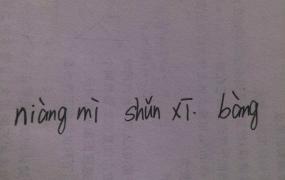 niàng mì shǔn xī. bàng